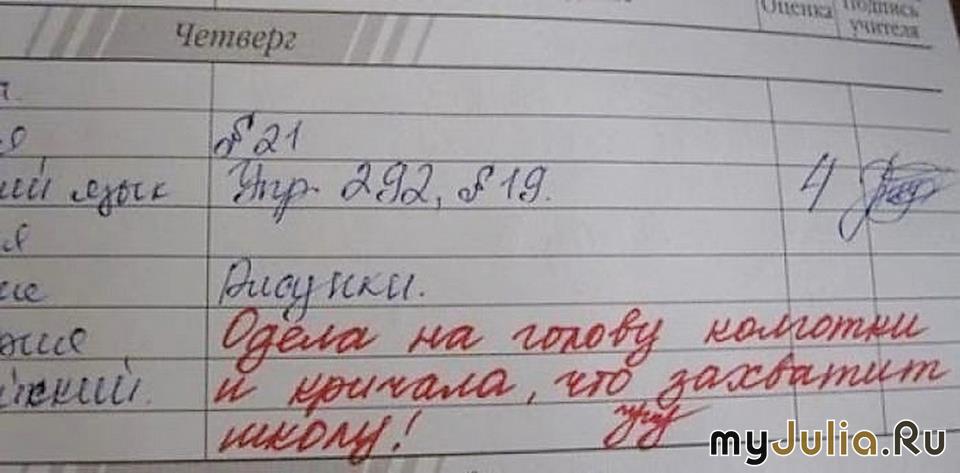 Оценка Подпись
учителя
Четверг
§ 21
ий язык Упр. 292, § 19. 4
Рисунки.
Одела на голову колготки
йский. и кричала, что захватит
школу!
myJulia.Ru